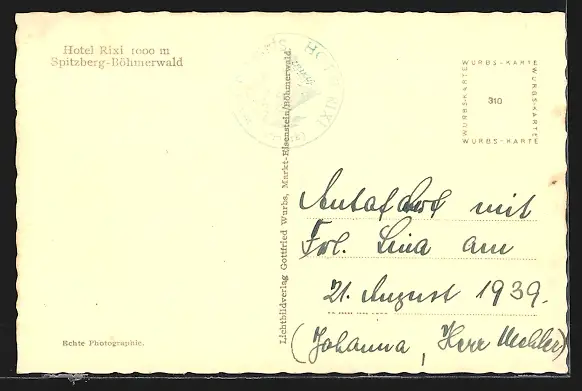 Hotel Rixi 1000 m
Spitzberg-Böhmerwald
HOTEL RIXI
WURBS-KARTE
WURBS-KARTE
310
WURBS-KARTE
WURBS-KARTE
Lichtbildverlag Gottfried Wurbs, Markt-Eisenstein/Böhmerwald.
Autofahrt mit
Frl. Lina am
21. August 1939.
(Johanna, Herr
Echte Photographie.